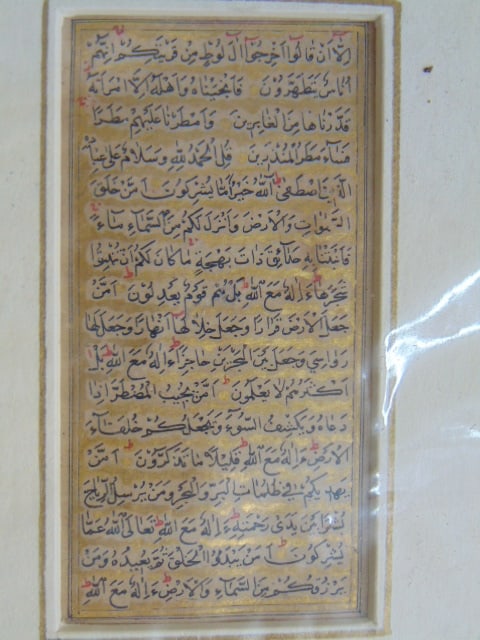 الا ان قالوا اخرجوا ال لوط من قريتكم انهم
اناس يتطهرون فانجيناه واهله الا امراته
قدرناها من الغابرين وامطرنا عليهم مطرا
فساء مطر المنذرين قل الحمد لله وسلام على عباده
الذين اصطفى الله خير اما يشركون امن خلق
السموات والارض وانزل لكم من السماء ماء
فانبتنا به حدائق ذات بهجة ما كان لكم ان تنبتوا
شجرها ءاله مع الله بل هم قوم يعدلون امن
جعل الارض قرارا وجعل خلالها انهارا وجعل لها
رواسي وجعل بين البحرين حاجزا ءاله مع الله بل
اكثرهم لا يعلمون امن يجيب المضطر اذا
دعاه ويكشف السوء ويجعلكم خلفاء
الارض ءاله مع الله قليلا ما تذكرون امن
يهديكم في ظلمات البر والبحر ومن يرسل الرياح
بشرا بين يدي رحمته ءاله مع الله تعالى الله عما
يشركون امن يبدؤا الخلق ثم يعيده ومن
يرزقكم من السماء والارض ءاله مع الله